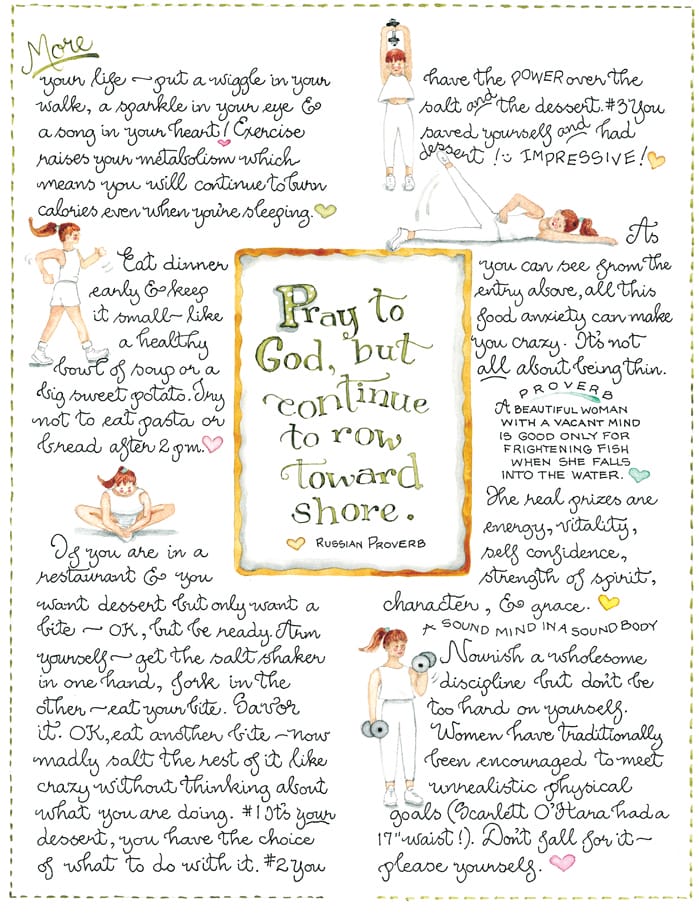 More
your life ~ put a wiggle in your
walk, a sparkle in your eye &
a song in your heart! Exercise
raises your metabolism which
means you will continue to burn
calories even when you're sleeping.
Eat dinner
early & keep
it small~ like
a healthy
bowl of soup or a
big sweet potato. Try
not to eat pasta or
bread after 2 pm.
If you are in a
restaurant & you
want dessert but only want a
bite ~ OK, but be ready. Arm
yourself ~ get the salt shaker
in one hand, fork in the
other ~ eat your bite. Savor
it. OK, eat another bite ~ now
madly salt the rest of it like
crazy without thinking about
what you are doing. #1 It's your
dessert, you have the choice
of what to do with it. #2 You
Pray to
God, but
continue
to row
toward
shore.
RUSSIAN PROVERB
have the POWER over the
salt and the dessert. #3 You
saved yourself and had
dessert! IMPRESSIVE!
As
you can see from the
entry above, all this
food anxiety can make
you crazy. It's not
all about being thin.
PROVERB
A BEAUTIFUL WOMAN
WITH A VACANT MIND
IS GOOD ONLY FOR
FRIGHTENING FISH
WHEN SHE FALLS
INTO THE WATER.
The real prizes are
energy, vitality,
self confidence,
strength of spirit,
character, & grace.
A SOUND MIND IN A SOUND BODY
Nourish a wholesome
discipline but don't be
too hard on yourself.
Women have traditionally
been encouraged to meet
unrealistic physical
goals (Scarlett O'Hara had a
17" waist!). Don't fall for it ~
please yourself.